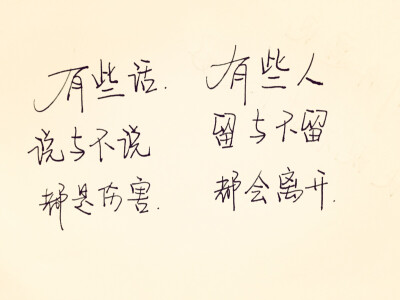 有些话.
说与不说
都是伤害.
有些人
留与不留
都会离开.